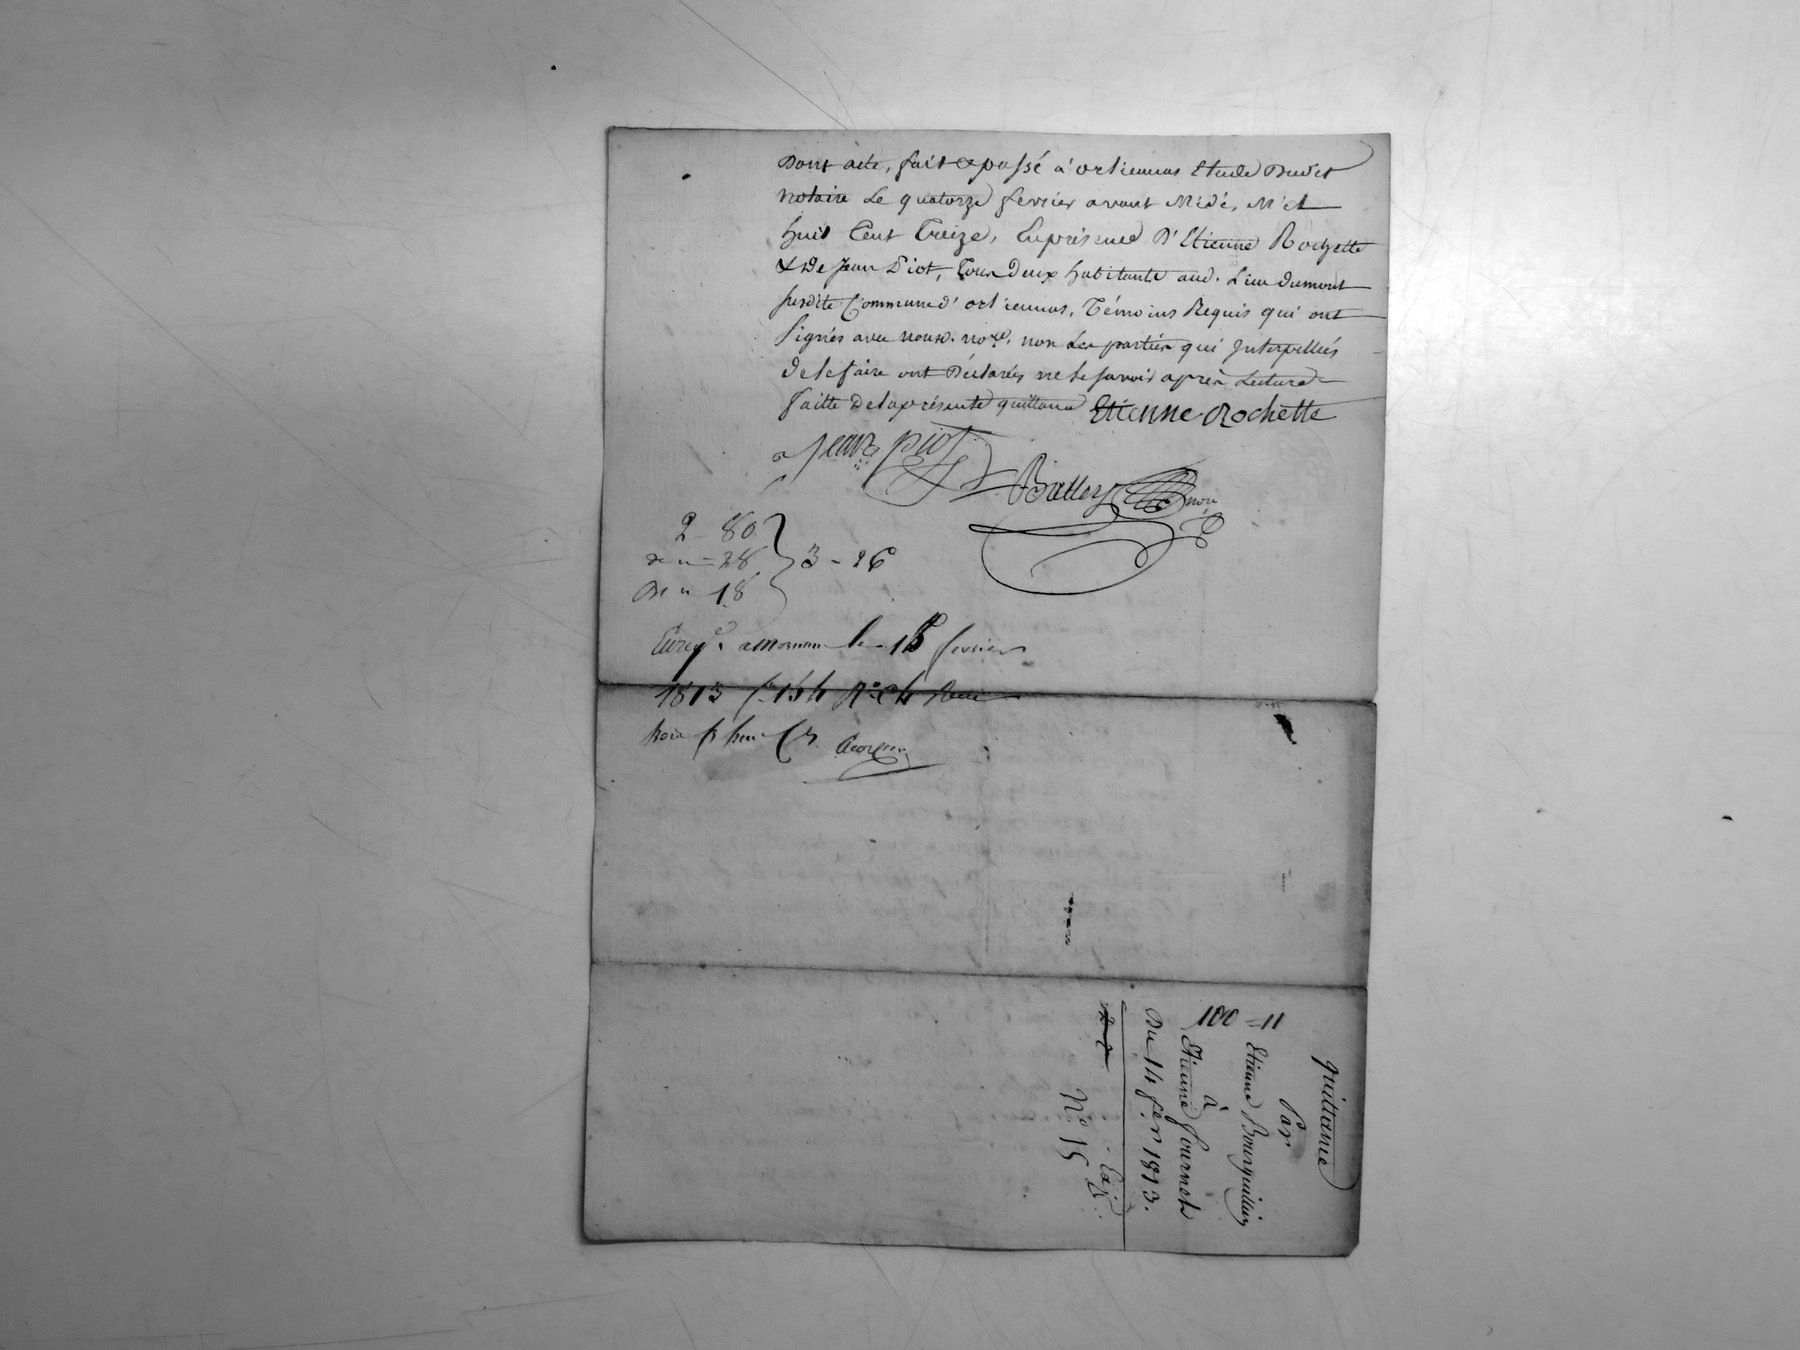 Dont acte, fait & passé à orliennas Etude Dudit
notaire Le quatorze fevrier avant Midi, Mil
huit Cent Treize, En présence D'Etienne Rochette
& De Jean Piot, Tous Deux habitants aud. Lieu Dumont
susdite Commune d'orliennas, Témoins Requis qui ont
signés avec nousd. nore. non Les parties qui Interpellés
de le faire ont Déclarés ne le savoir après Lecture
faitte De la présente quittance Etienne Rochette
Jean piot
Balley nore
2 - 80
28
18
3 - 26
Enregé. a Mornan le 15 fevrier
1813 fo. 154
trois fr
quittance
Par
Etienne Bourguillin
100 = 11
à
Etienne Journet
Du 14 fer. 1813.
Exp.
No. 15